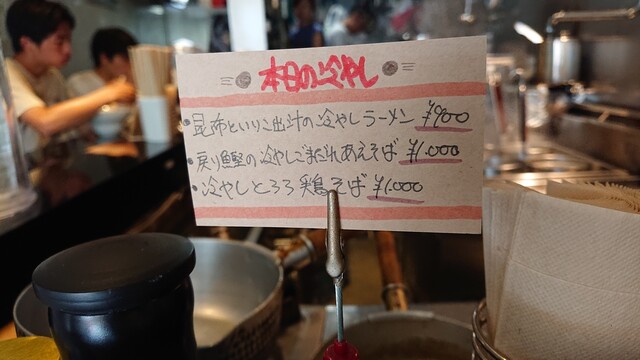 本日の冷やし
・昆布といりこ出汁の冷やしラーメン ¥900
・戻り鰹の冷やしごまだれあえそば ¥1.000
・冷やしとろろ鶏そば ¥1.000